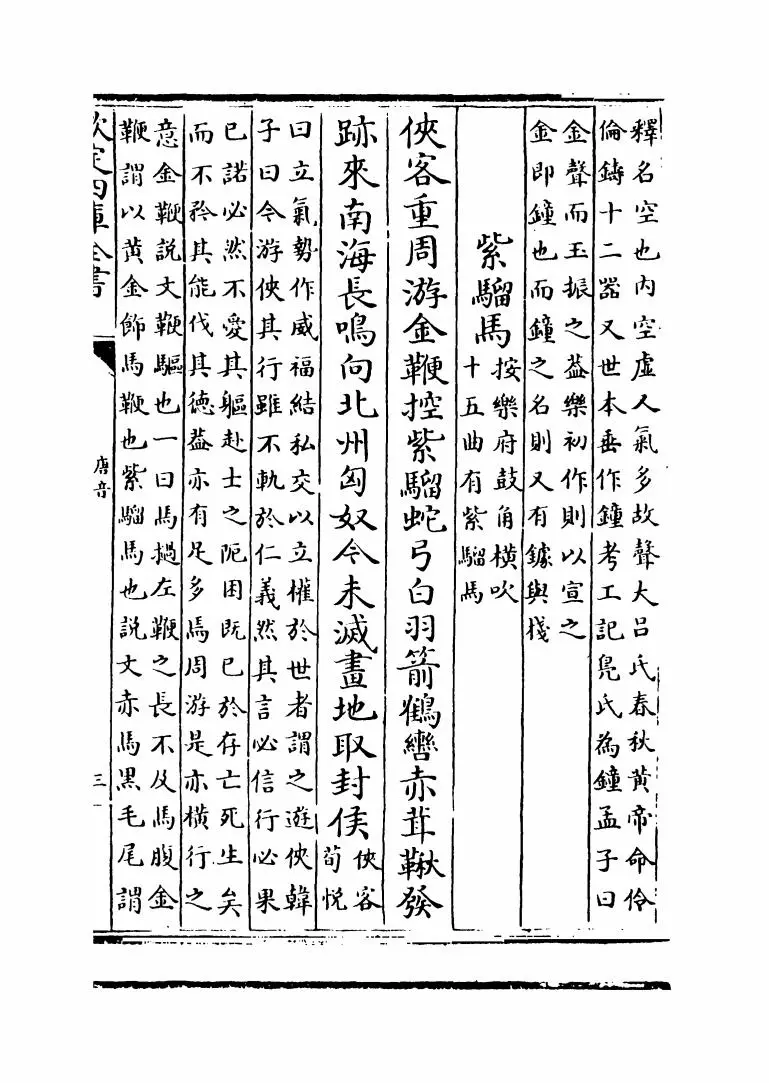 釋名空也内空虚人氣多故聲大吕氏春秋黄帝命伶
倫鑄十二器又世本垂作鐘考工記鳬氏為鐘孟子曰
金聲而玉振之葢樂初作則以宣之
金即鐘也而鐘之名則又有鐻與棧
紫騮馬
按樂府鼓角横吹
十五曲有紫騮馬
俠客重周游金鞭控紫騮蛇弓白羽箭鶴轡赤茸鞦發
跡來南海長鳴向北州匈奴今未滅畫地取封侯
俠客
荀悦
曰立氣勢作威福結私交以立權於世者謂之遊俠韓
子曰今游俠其行雖不軌於仁義然其言必信行必果
已諾必然不愛其軀赴士之阨困既已於存亡死生矣
而不矜其能伐其徳葢亦有足多焉周游是亦横行之
意金鞭説文鞭驅也一曰馬撾左鞭之長不及馬腹金
鞭謂以黄金飾馬鞭也紫騮馬也説文赤馬黒毛尾謂
欽定四庫全書
唐音
三